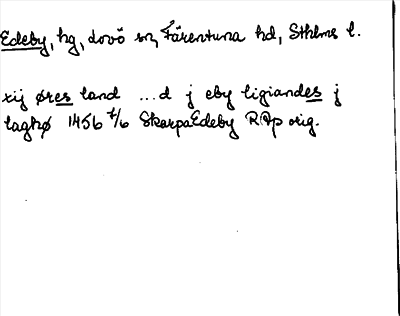 Edeby, hg, Lovö sn, Färentuna hd, Sthlms l.
xij øres land ...d j eby ligiandes j
laghø 1456 4/6 SkarpaEdeby RAp orig.